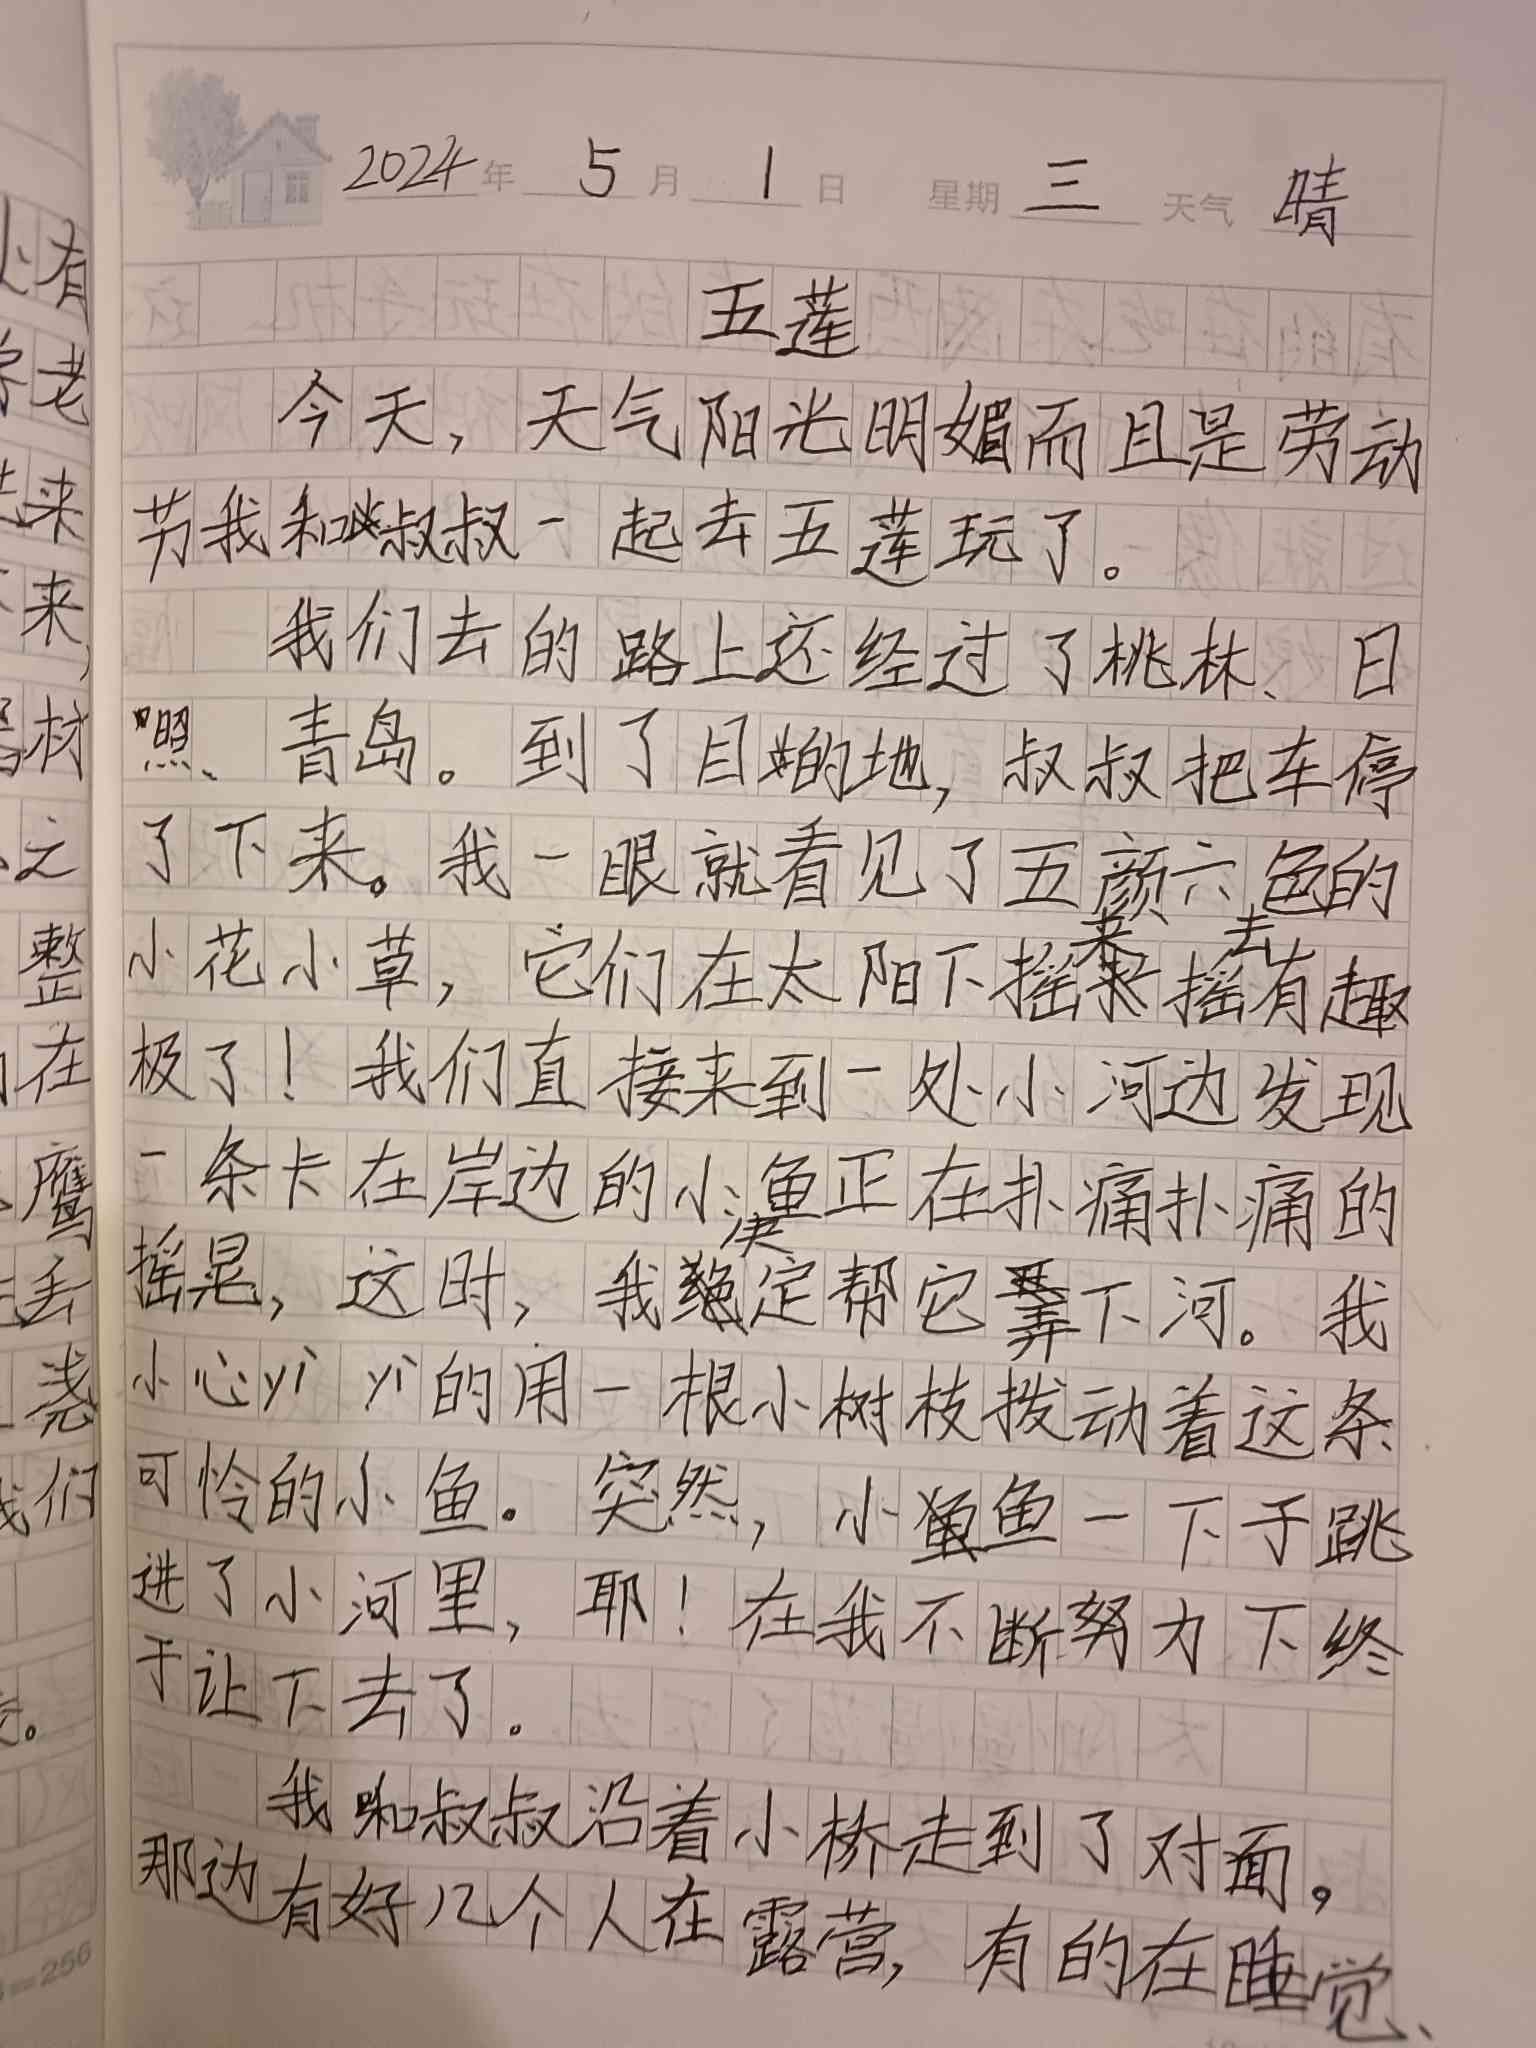 2024年 5月 1日 星期三 天气 晴
五莲
今天，天气阳光明媚而且是劳动
节我和叔叔一起去五莲玩了。
我们去的路上还经过了桃林、日
照、青岛。到了目的地，叔叔把车停
了下来。我一眼就看见了五颜六色的
小花小草，它们在太阳下摇来摇去有趣
极了！我们直接来到一处小河边发现
一条卡在岸边的小鱼正在扑痛扑痛的
摇晃，这时，我决定帮它弄下河。我
小心yì yì的用一根小树枝拨动着这条
可怜的小鱼。突然，小鱼一下于跳
进了小河里，耶！在我不断努力下终
于让下去了．
我和叔叔沿着小桥走到了对面。
那边有好几个人在露营，有的在睡觉、